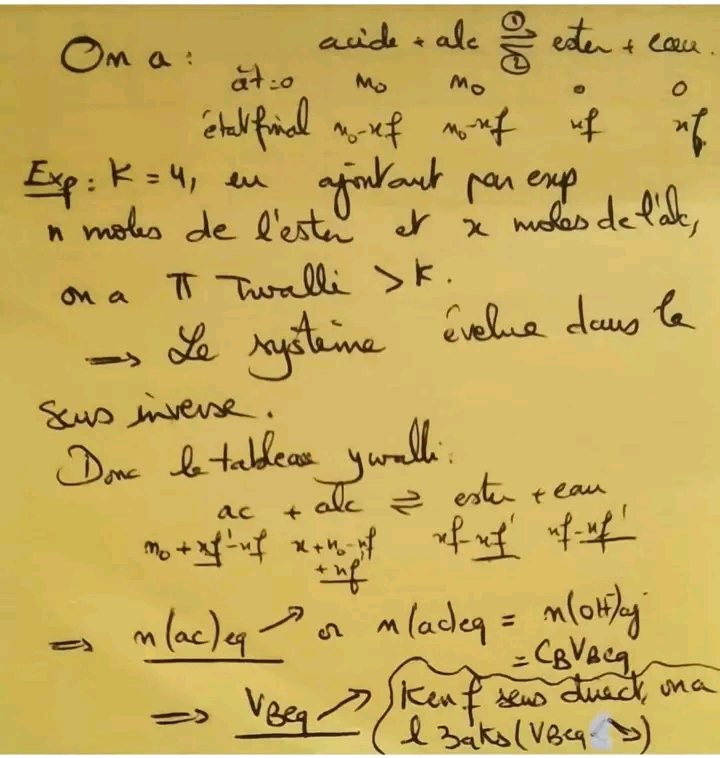 On a : acide + alc ⇌ ester + eau.
① ②
à t=0 n₀ n₀ 0 0
état final n₀-xf n₀-xf xf xf
Exp : K = 4, en ajoutant par exp
n moles de l'ester et x moles de l'alc,
on a π Twalli > K.
⟹ Le système évolue dans le
sens inverse.
Donc le tableau ywalli :
ac + alc ⇌ ester + eau
n₀ + xf'-xf x+n₀-xf xf-xf' xf-xf'
+xf'
⟹ n(ac)eq ↗ or n(ac)eq = n(OH⁻)aj
= CBVBeq
⟹ VBeq ↗ (Ken f sens direct, ona
l 3aks (VBeq ↘)